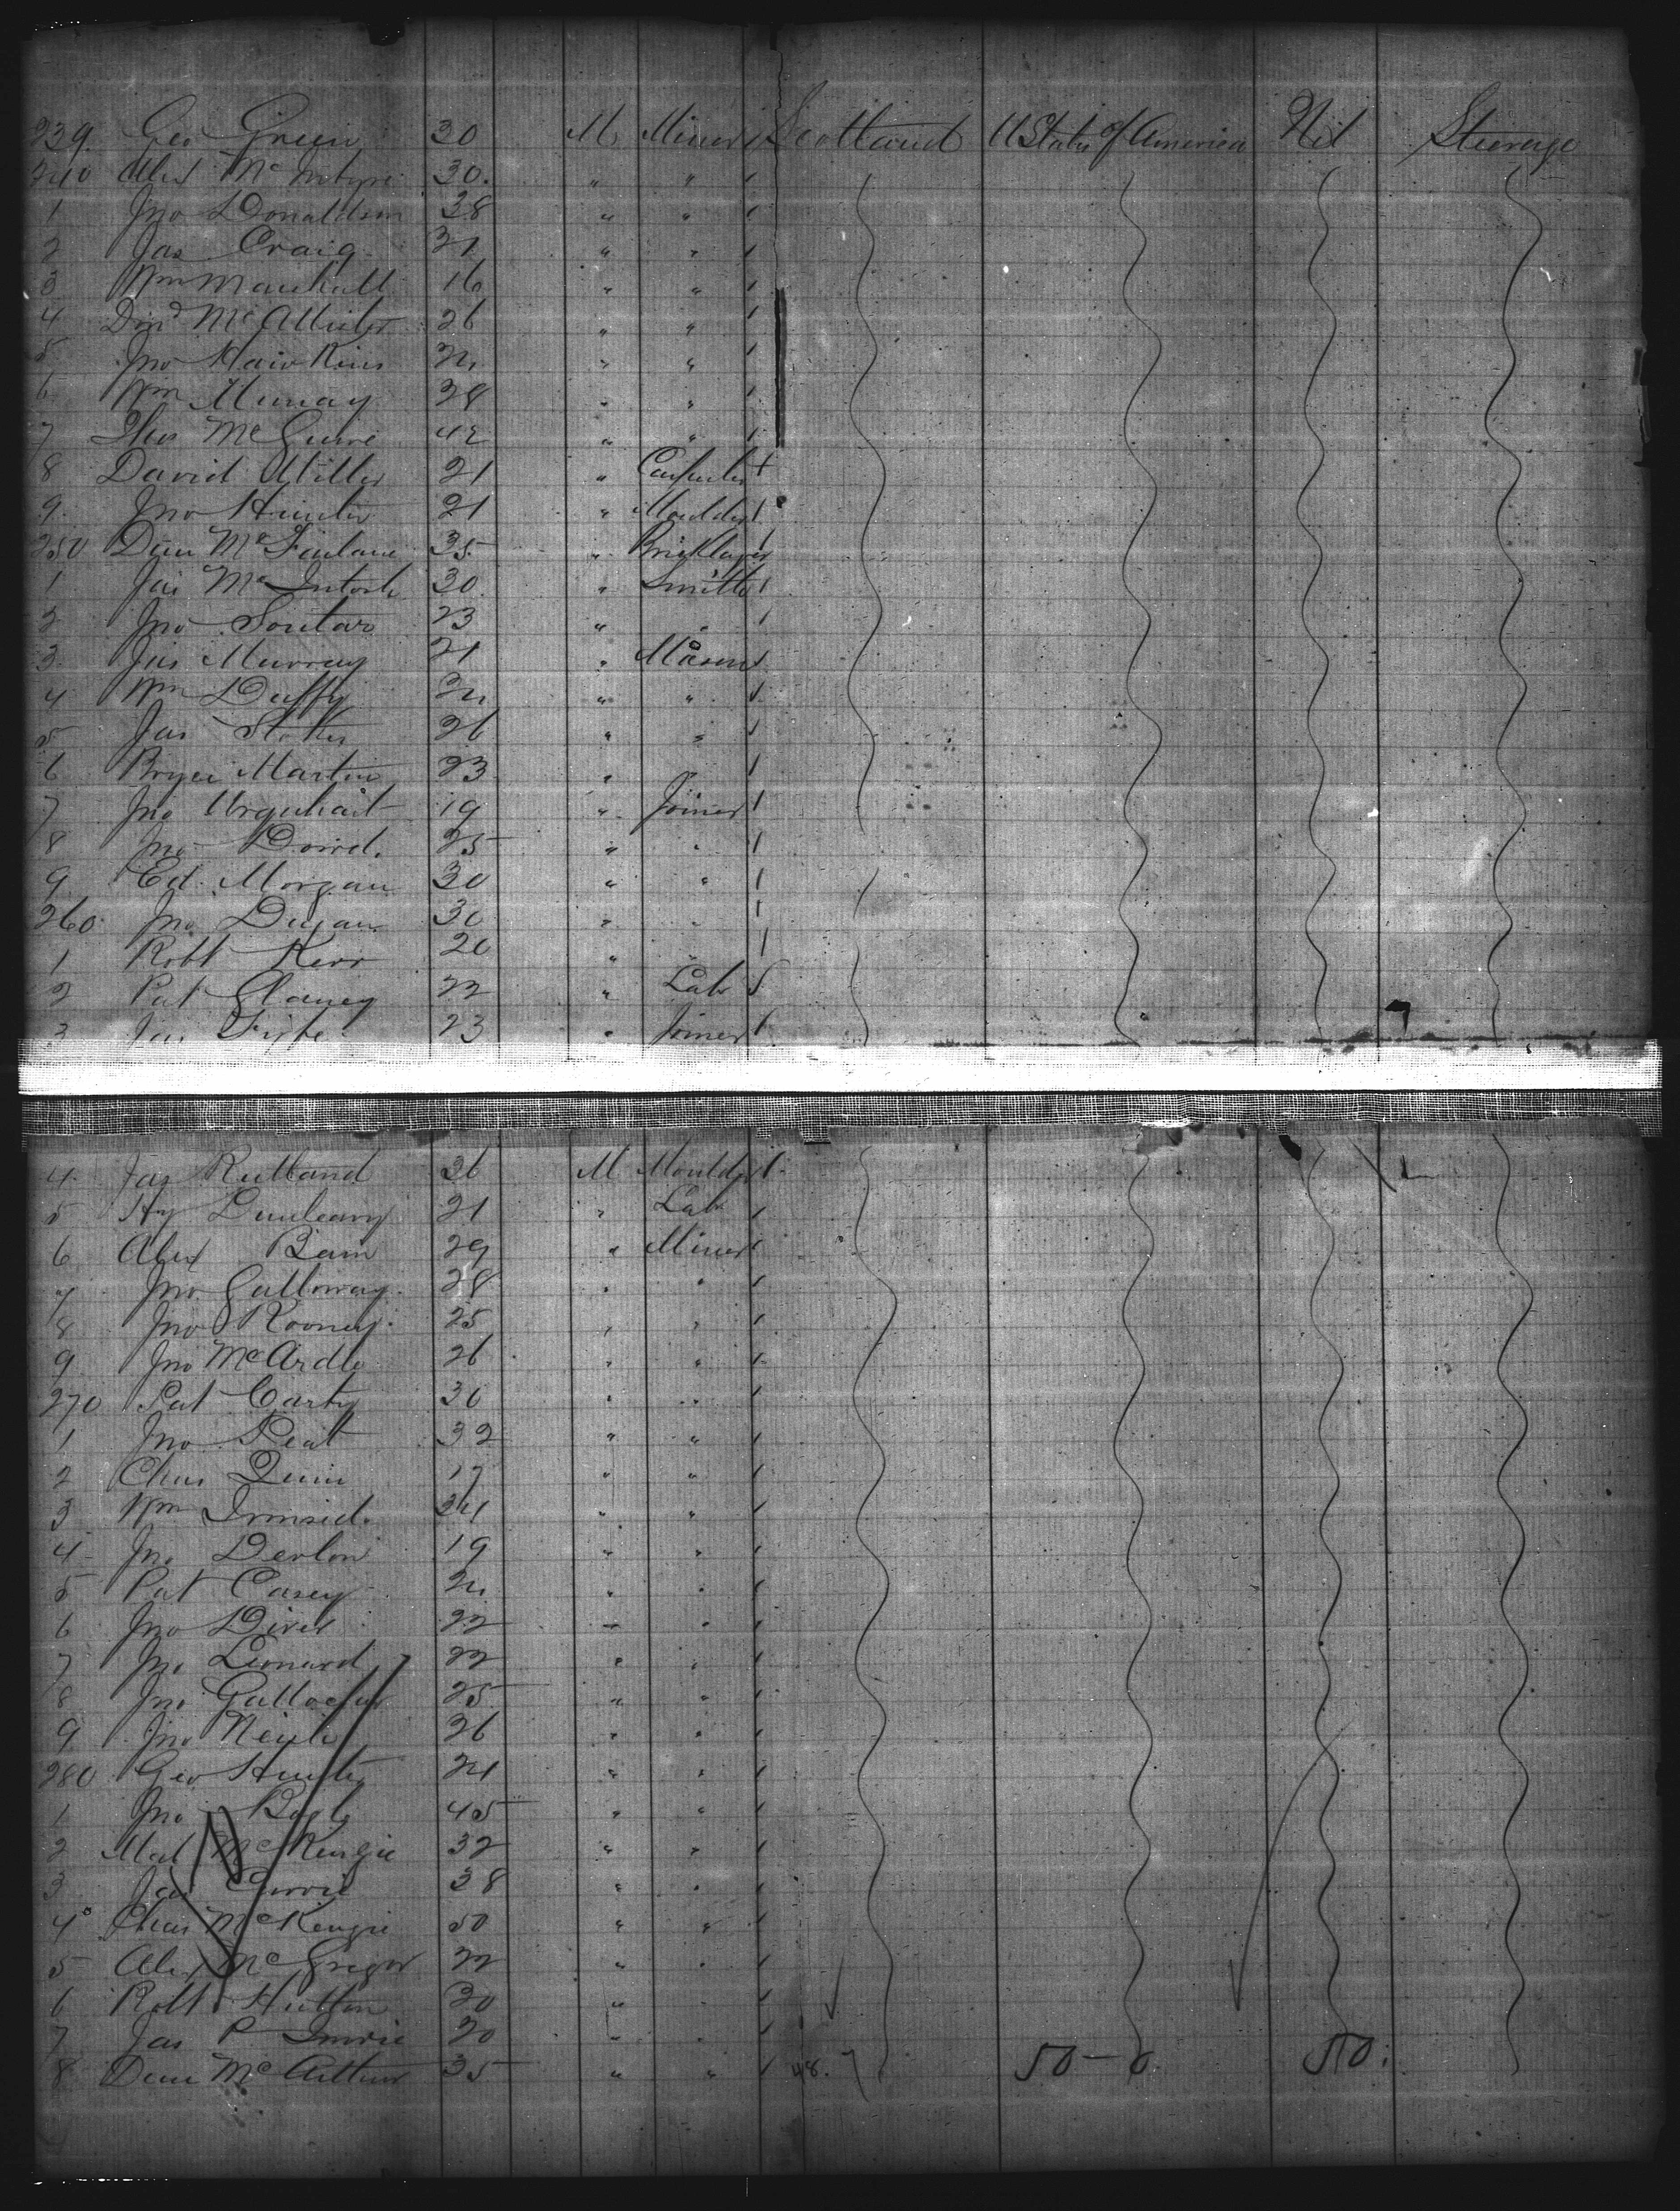 239. Geo Green 30 M Miner Scotland U States of America Nil Steerage
240 Alex McIntyre 30. " "
1 Jno Donaldson 38 " "
2 Jas Craig " "
3 Wm Marshall 16 " "
4 Dnd McAllister 26 " "
5 Jno Hawkins " "
6 Wm Murray 28 " "
7 Thos McGuire 42 " "
8 David Miller 21 " Carpenter
9. Jno Hunter 21 " Moulder
250 Dun McFarlane 35 " Bricklayer
1 Jas McIntosh 30 " Smith
2 Jno Soutar 23 " "
3 Jas Murray 21 " Mason
4 Wm Duffy " "
5 Jas 26 " "
6 Bryce Martin 23 "
7 Jno Urquhart 19 " Joiner
8 Jno Dowd. 25 " "
9 Ed. Morgan 30 " "
260 Jno Dugan 30 " "
1 Robt Kerr 20 " "
2 Pat Clancy 22 " Lab
3 Jas Fife 23 " Joiner
4. Jas Rutland 36 M Moulder
5 Hy Dunleavy 21 " Lab
6 Alex Bain 29 " Miner
7 Jno Galloway 28 " "
8 Jno Rooney 25 " "
9 Jno McArdle 26 " "
270 Pat Carty 30 " "
1 Jno Peat 32 " "
2 Chas Quin 17 " "
3 Wm Ironside " "
4 Jno Devlin 19 " "
5 Pat Casey " "
6 Jno Diver 22 " "
7 Jno Leonard 22 " "
8 Jno Gallocher 25 " "
9 Jno 26 " "
280 Geo Hunter " "
1 Jno Boyle 45 " "
2 Mal McKenzie 32 " "
3 Jas Currie 38 " "
4 Chas McKenzie 50 " "
5 Alex McGregor 22 " "
6 Robt Hutton 30 " "
7 Jas P Imrie 20 " "
8 Dun McArthur 35 " " 48. 50 - 0. 50.